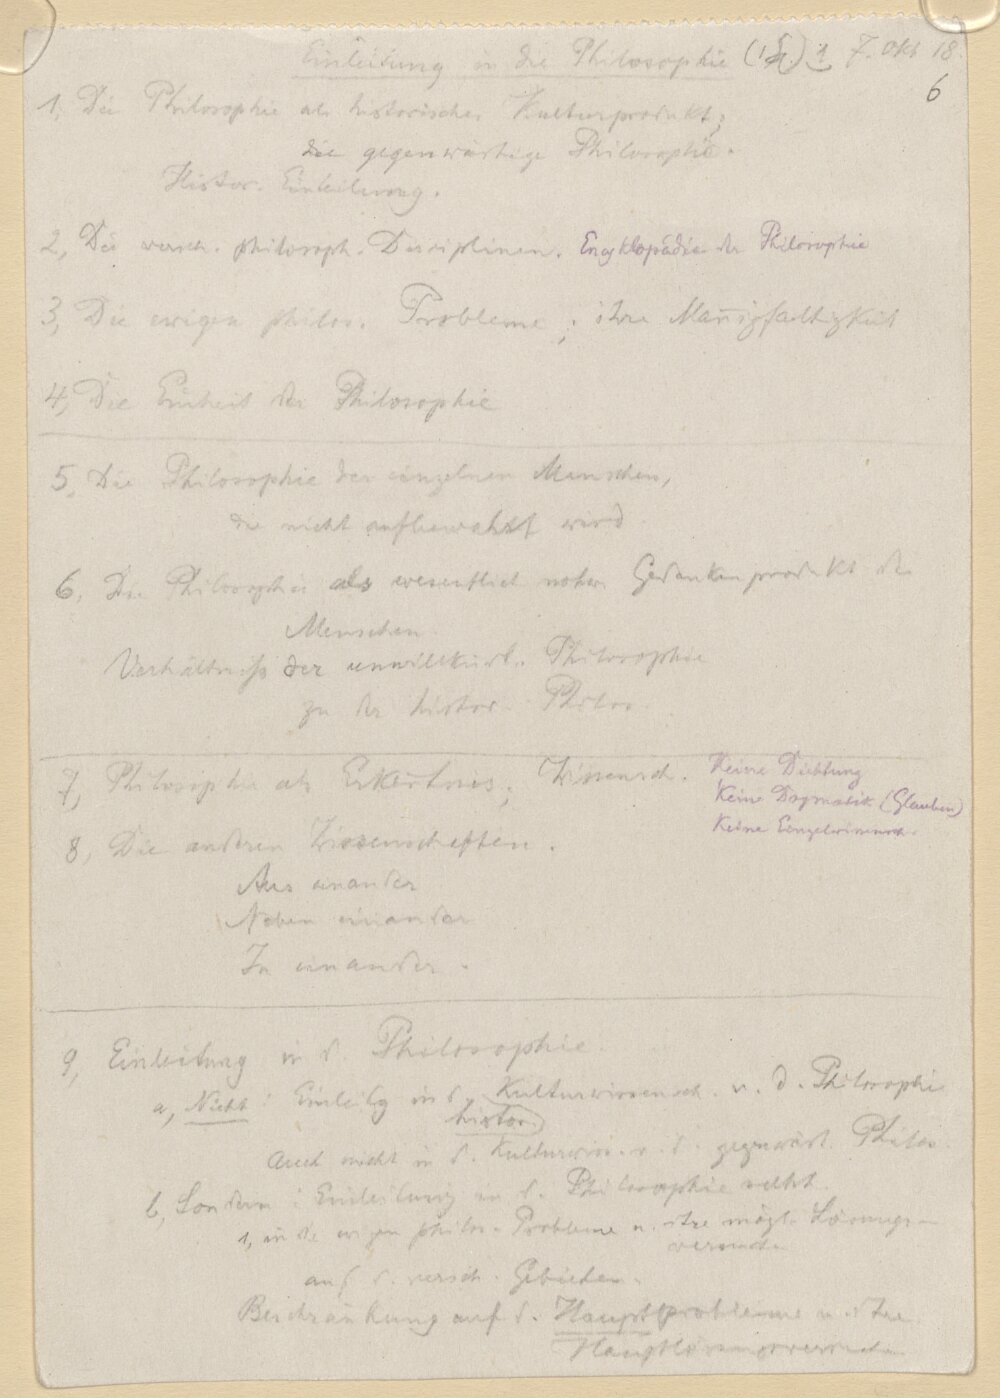 Einleitung in die Philosophie (1 1 7. Okt 18.
6
1, Die Philosophie als historisches Kulturprodukt;
die gegenwärtige Philosophie.
Histor. Einleitung.
2, Die versch. philosoph. Disciplinen. Encyklopädie der Philosophie
3, Die ewigen philos. Probleme; ihre Mannigfaltigkeit
4, Die Einheit der Philosophie
5, Die Philosophie der einzelnen Menschen,
die nicht aufbewahrt wird
6, Die Philosophie als wesentlich notw. Gedankenprodukt des
Menschen.
Verhältniss der unwillkürl. Philosophie
zu der histor. Philos.
7, Philosophie als Erkenntnis; Wissensch.
Keine Dichtung
Keine Dogmatik (Glauben)
Keine Einzelwissensch.
8, Die anderen Wissenschaften.
Aus einander
Neben einander
In einander.
9, Einleitung in d. Philosophie.
a, Nicht: Einleitg in d. Kulturwissensch. v. d. Philosophie
histor.
Auch nicht in d. Kulturwiss. v. d. gegenwärt. Philos.
b, Sondern: Einleitung in d. Philosophie selbst.
1, in die ewigen philos. Probleme u. ihre mögl. Lösungs-
versuche
auf d. versch. Gebieten.
Beschränkung auf d. Hauptprobleme u. ihre
Hauptlösungsversuche